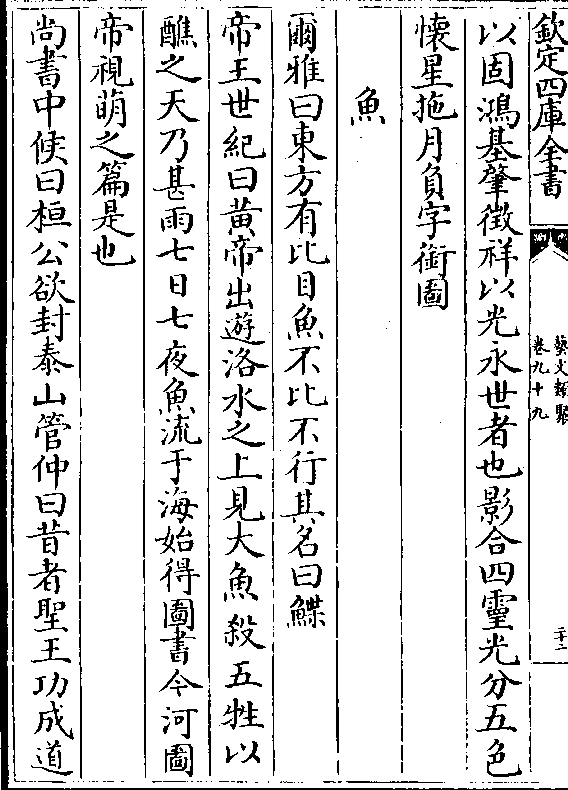 欽定四庫全書
藝文類聚
卷九十九
二十二
以固鴻基肇徵祥以光永世者也影合四靈光分五色
懷星拖月負字銜圖
魚
爾雅曰東方有比目魚不比不行其名曰鰈
帝王世紀曰黃帝出遊洛水之上見大魚殺五牲以
醮之天乃甚雨七日七夜魚流于海始得圖書今河圖
帝視萌之篇是也
尚書中候曰桓公欲封泰山管仲曰昔者聖王功成道